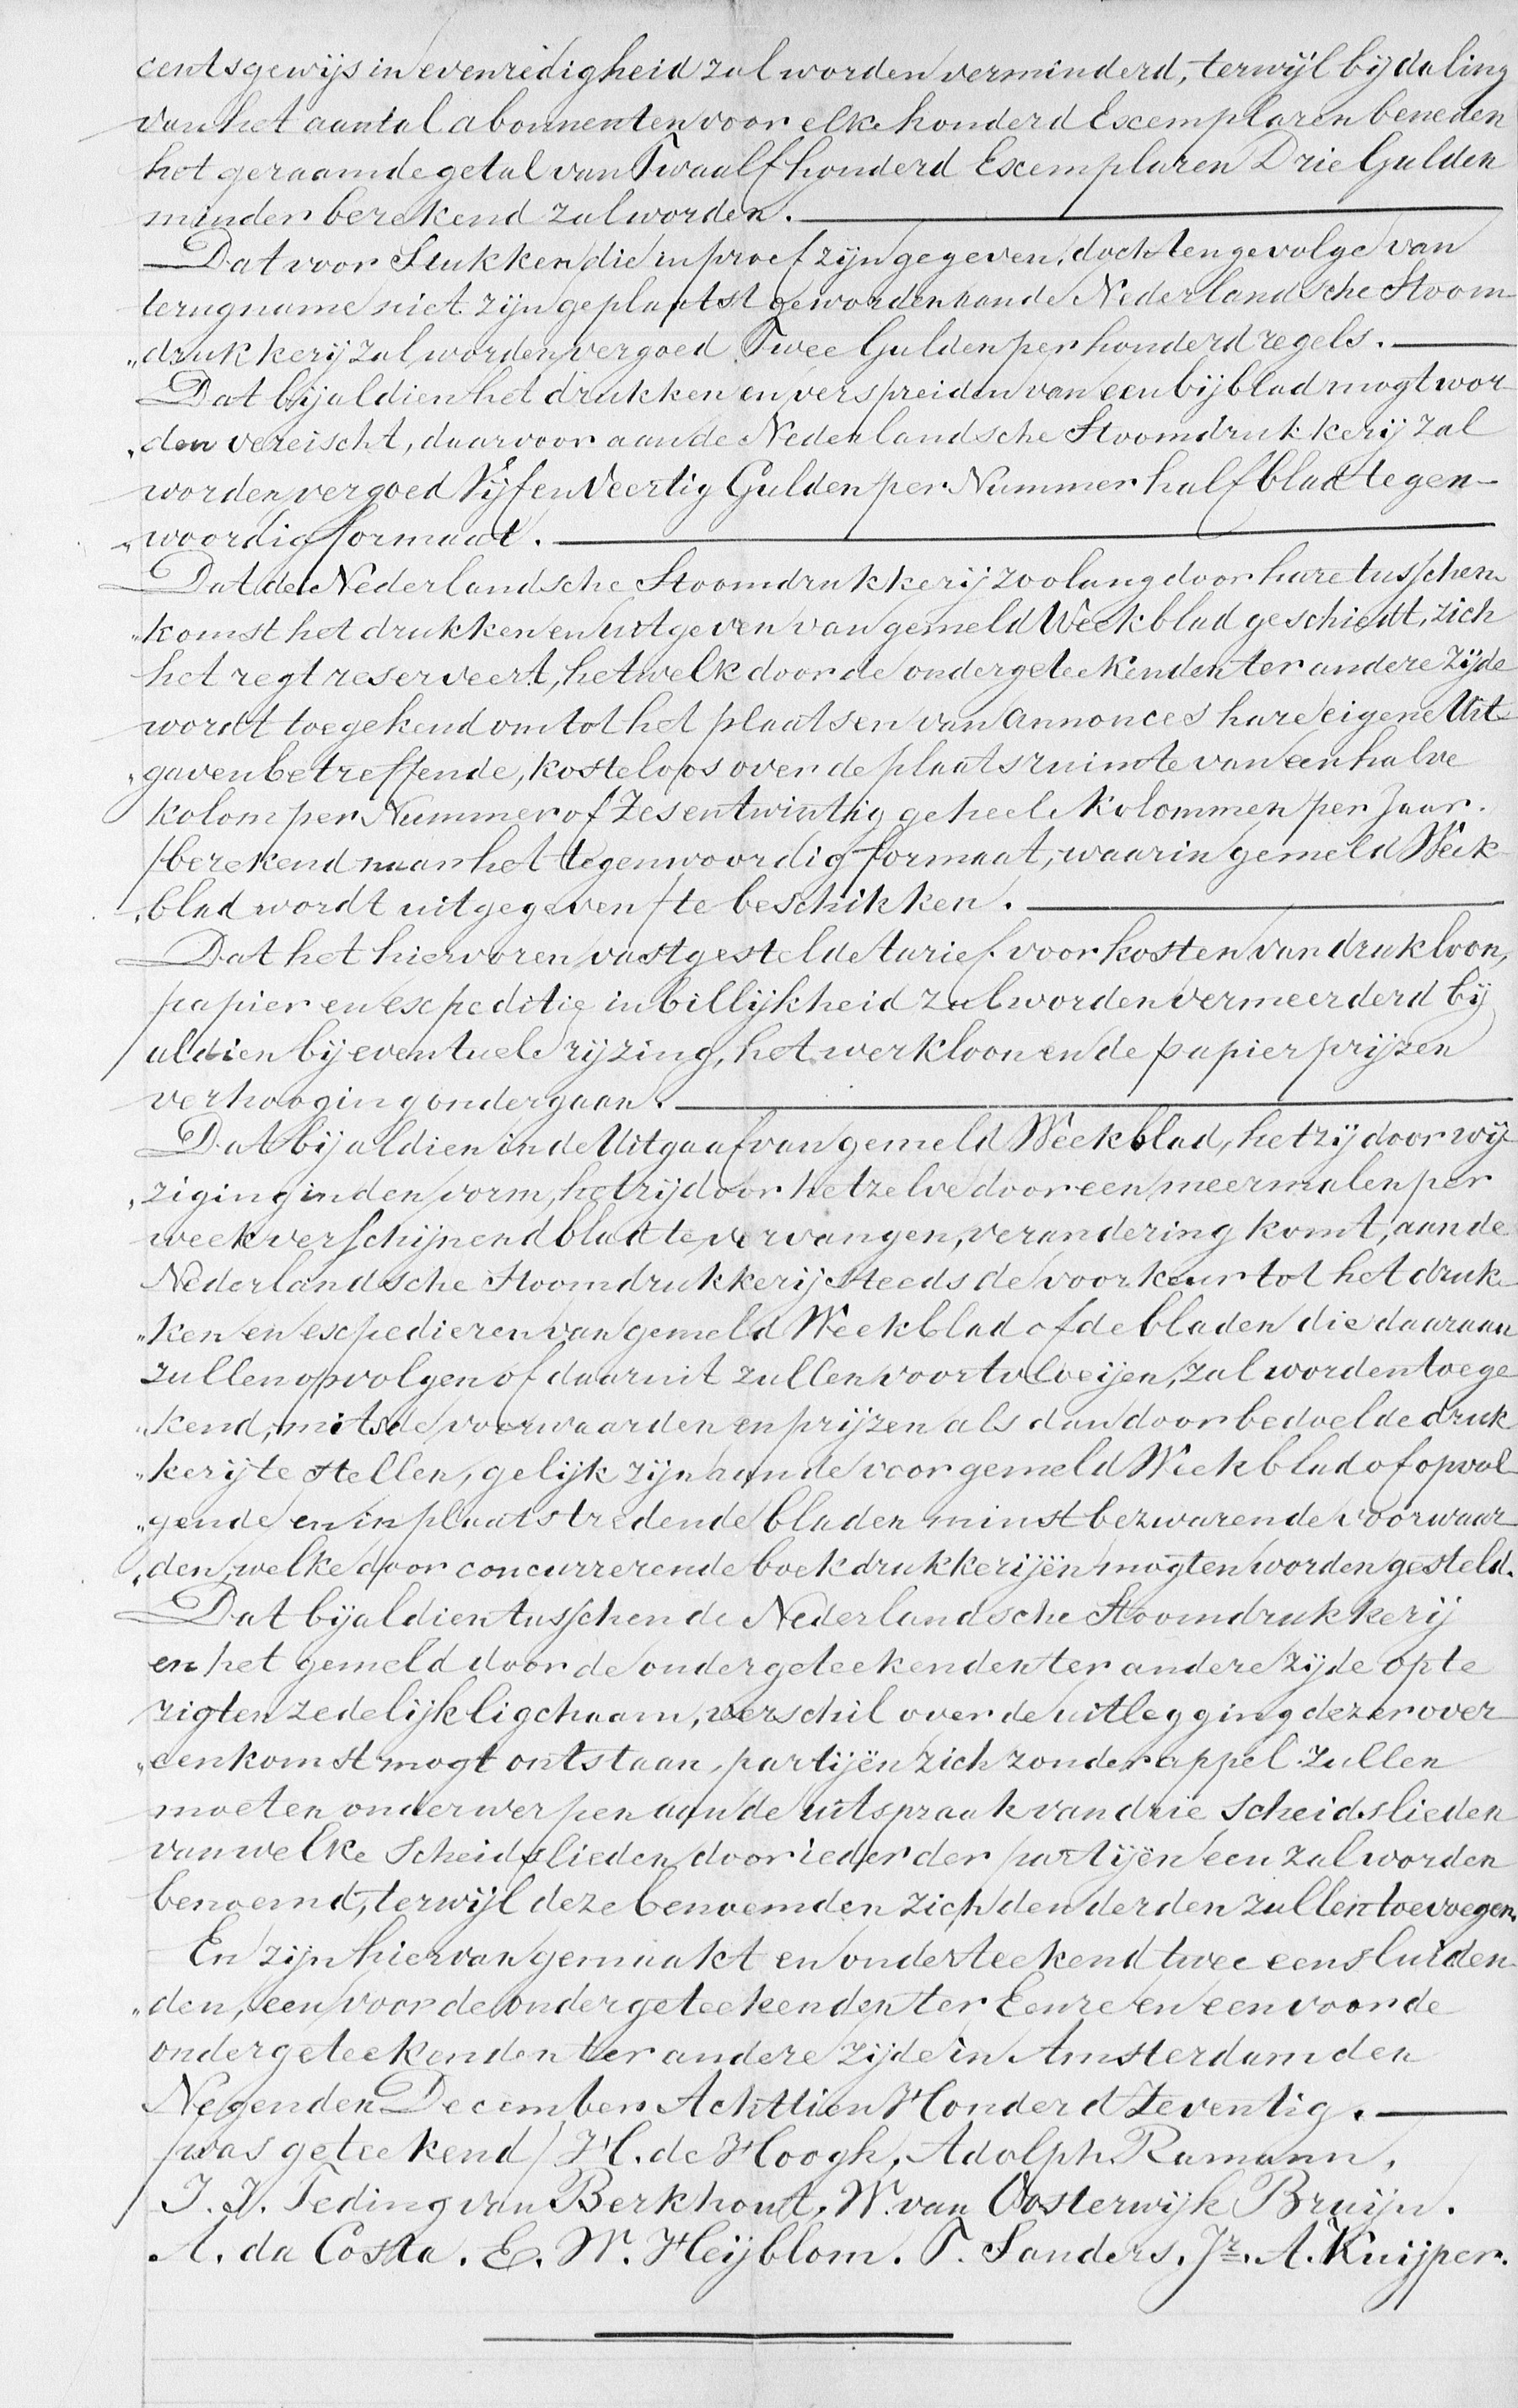 centsgewijs in evenredigheid zal worden verminderd, terwijl bij daling
van het aantal abonnenten voor elke honderd Exemplaren beneden
het geraamde getal van Twaalf honderd Exemplaren Drie Gulden
minder berekend zal worden.
Dat voor Stukken die in proef zijn gegeven, doch tengevolge van
terugname niet zijn geplaatst geworden aan de Nederlandsche Stoom-
„drukkerij zal worden vergoed Twee Gulden per honderd regels.
Dat bijaldien het drukken en verspreiden van een bijblad mogt wor-
„den vereischt, daarvoor aan de Nederlandsche Stoomdrukkerij zal
worden vergoed Vijf en Veertig Gulden per Nummer half blad tegen-
„woordig formaat.
Dat de Nederlandsche Stoomdrukkerij zoolang door hare tusschen-
„komst het drukken en uitgeven van gemeld Weekblad geschiedt, zich
het regt reserveert, hetwelk door de ondergeteekenden ter andere zijde
wordt toegekend om tot het plaatsen van annonces hare eigene Uit-
„gaven betreffende, kosteloos over de plaatsruimte van een halve
kolom per Nummer of Zesentwintig geheele kolommen per Jaar.
/berekend naar het tegenwoordig formaat, waarin gemeld Week-
„blad wordt uitgegeven/ te beschikken.
Dat het hiervoren vastgestelde tarief voor kosten van drukloon,
papier en expeditie in billijkheid zal worden vermeerderd bij
aldien bij eventuele rijzing, het werkloon en de papierprijzen
verhooging ondergaan.
Dat bijaldien in de Uitgaaf van gemeld Weekblad, hetzij door wij-
„ziging in den vorm, hetzij door hetzelve door een meermalen per
week verschijnend blad te vervangen, verandering komt, aan de
Nederlandsche Stoomdrukkerij steeds de voorkeur tot het druk-
„ken en expedieren van gemeld Weekblad of de bladen die daaraan
zullen opvolgen of daaruit zullen voortvloeijen, zal worden toege-
„kend, mits de voorwaarden en prijzen als dan door bedoelde druk-
„kerij te stellen, gelijk zijn aan de voor gemeld Weekblad of opvol-
„gende en in plaats tredende bladen minst bezwarende voorwaar-
„den, welke door concurrerende boekdrukkerijën mogten worden gesteld.
Dat bijaldien tusschen de Nederlandsche Stoomdrukkerij
en het gemeld door de ondergeteekenden ter andere zijde op te
rigten zedelijk ligchaam, verschil over de uitlegging dezer over-
„eenkomst mogt ontstaan, partijën zich zonder appel zullen
moeten onderwerpen aan de uitspraak van drie Scheidslieden
van welke Scheidslieden door ieder der partijën een zal worden
benoemd, terwijl deze benoemden zich den derden zullen toevoegen.
En zijn hiervan gemaakt en onderteekend twee eensluiden-
„den, een voor de ondergeteekenden ter Eenre en een voor de
ondergeteekenden ter andere zijde in Amsterdam den
Negenden December Achttien Honderd Zeventig.
/was geteekend/ H. de Hoogh, Adolph Ramann,
J. J. Teding van Berkhout, W. van Oosterwijk Bruijn.
A. da Costa. E. W. Heijblom. T. Sanders. Jr. A. Kuijper.